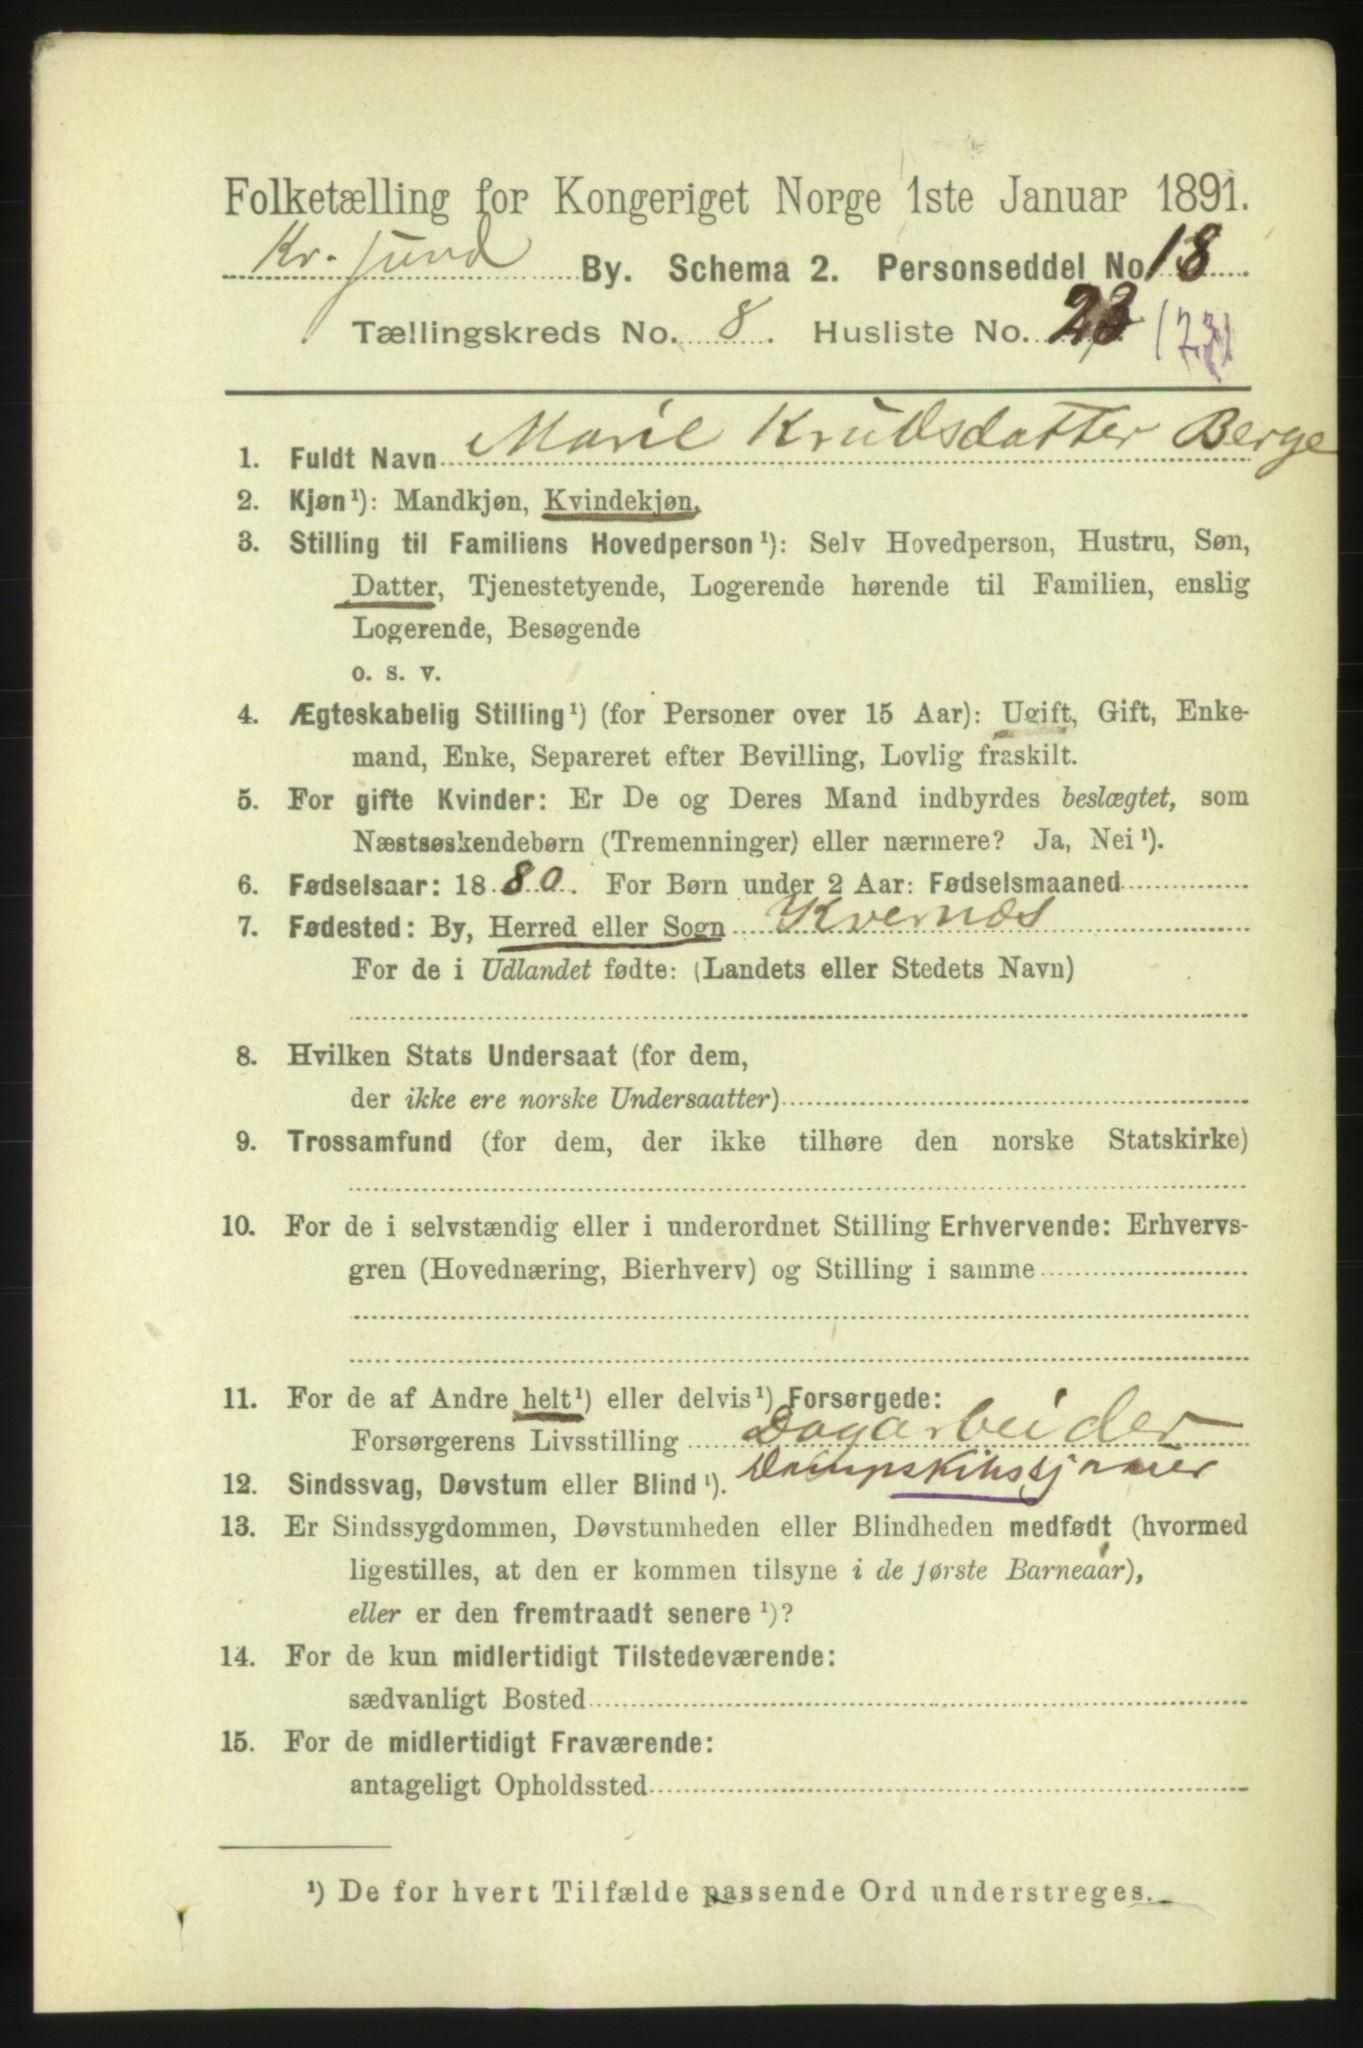 Folketælling for Kongeriget Norge 1ste Januar 1891.
Kr. sund By. Schema 2. Personseddel No 18
Tællingskreds No. 8. Husliste No. 23 (23)
1. Fuldt Navn Marie Knudsdatter Berge
2. Kjøn¹): Mandkjøn, Kvindekjøn.
3. Stilling til Familiens Hovedperson¹): Selv Hovedperson, Hustru, Søn,
Datter, Tjenestetyende, Logerende hørende til Familien, enslig
Logerende, Besøgende
o. s. v.
4. Ægteskabelig Stilling¹) (for Personer over 15 Aar): Ugift, Gift, Enke-
mand, Enke, Separeret efter Bevilling, Lovlig fraskilt.
5. For gifte Kvinder: Er De og Deres Mand indbyrdes beslægtet, som
Næstsøskendebørn (Tremenninger) eller nærmere? Ja, Nei¹).
6. Fødselsaar: 1880. For Børn under 2 Aar: Fødselsmaaned
7. Fødested: By, Herred eller Sogn Kvernes
For de i Udlandet fødte: (Landets eller Stedets Navn)
8. Hvilken Stats Undersaat (for dem,
der ikke ere norske Undersaatter)
9. Trossamfund (for dem, der ikke tilhøre den norske Statskirke)
10. For de i selvstændig eller i underordnet Stilling Erhvervende: Erhvervs-
gren (Hovednæring, Bierhverv) og Stilling i samme
11. For de af Andre helt¹) eller delvis¹) Forsørgede:
Forsørgerens Livsstilling Dagarbeider
12. Sindssvag, Døvstum eller Blind¹).
13. Er Sindssygdommen, Døvstumheden eller Blindheden medfødt (hvormed
ligestilles, at den er kommen tilsyne i de første Barneaar),
eller er den fremtraadt senere¹)?
14. For de kun midlertidigt Tilstedeværende:
sædvanligt Bosted
15. For de midlertidigt Fraværende:
antageligt Opholdssted
¹) De for hvert Tilfælde passende Ord understreges.